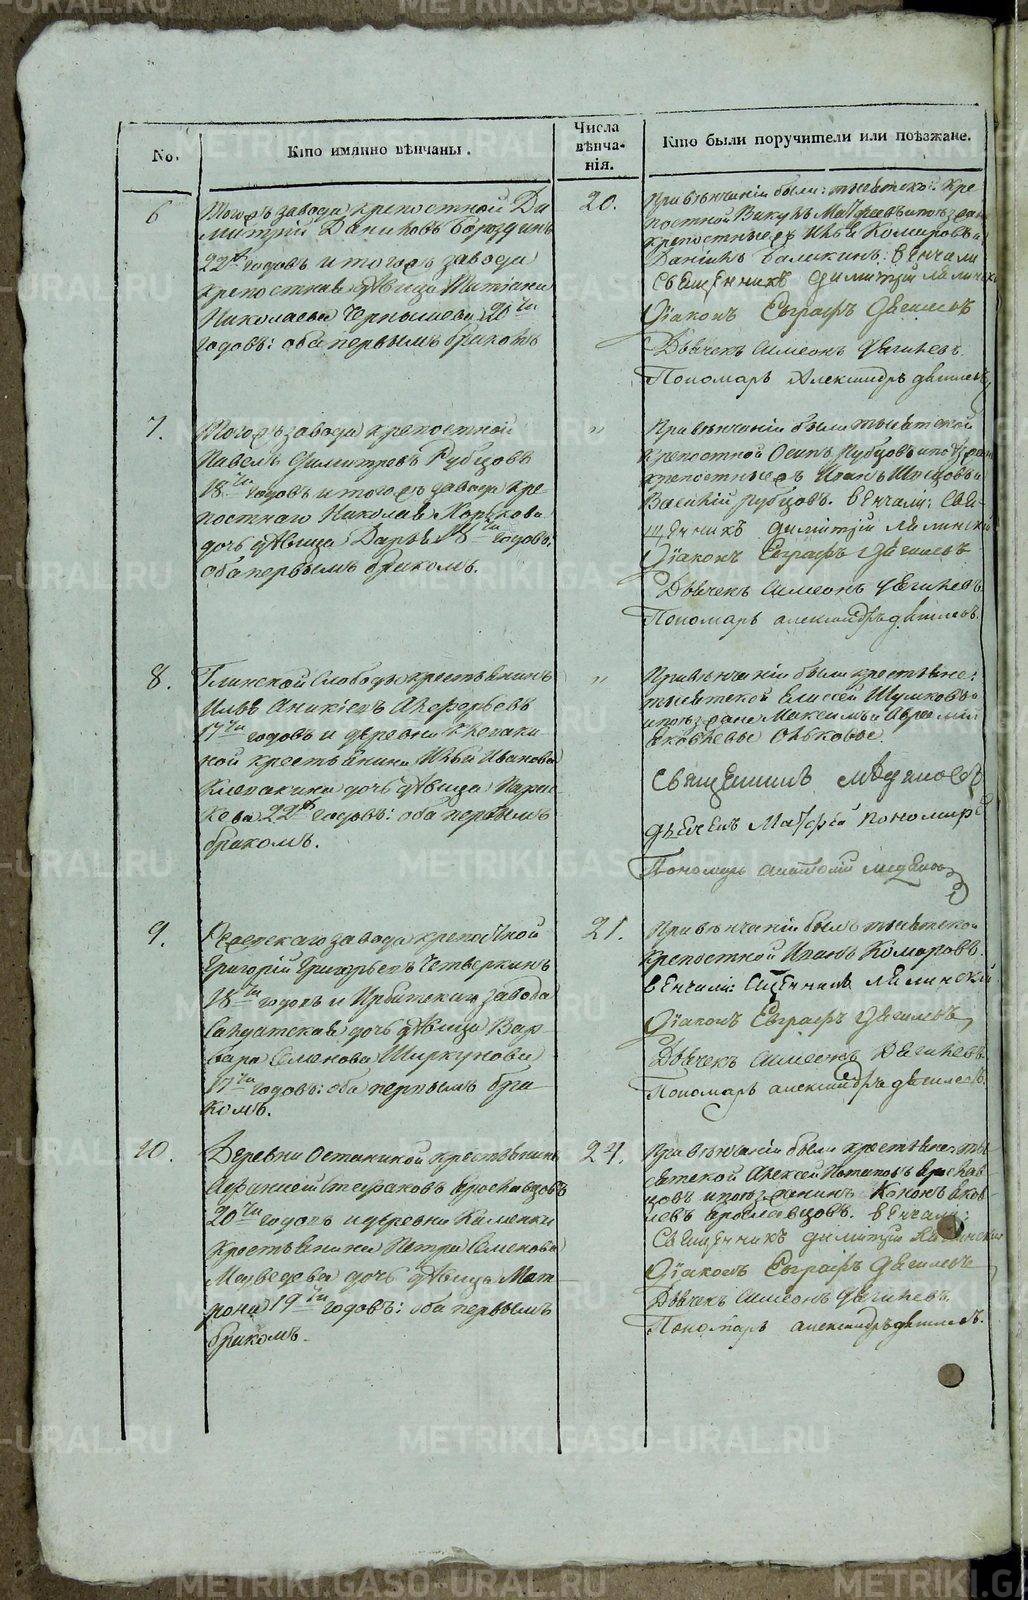 No.
Кто имянно вѣнчаны.
Числа
вѣнча-
нія.
Кто были поручители или поѣзжане.
6
Тогожъ завода крепостной Ди
митрій Даниловъ Бороздинъ
22хъ годовъ и тогожъ завода
крепостная дѣвица Татіана
Николаева Чернышева 20ти
годовъ: оба первымъ бракомъ
20.
При вѣнчаніи были: тысятской кре-
постной Викулъ Матфеевъ и поезжана
крепостные жъ Илья Комаровъ и
Данилъ Галикинъ: венчали
Священникъ Димитрій Лялинскій
Діаконъ Евграфъ Дягилевъ
Дьячекъ Симеонъ Дягилевъ
Пономарь Александръ Дягилевъ
7.
Тогожъ завода крепостной
Павелъ Димитревъ Рубцовъ
18ти годовъ и тогожъ завода кре-
постнаго Николая Хорькова
дочь дѣвица Дарья 18ти годовъ:
оба первымъ бракомъ.
„
При вѣнчаніи были тысятской
крепостной Осипъ Рубцовъ и поѣзжана
крепостные жъ Иванъ и
Василій Рубцовъ. венчали: Свя-
щенникъ Димитрій Лялинскій
Діаконъ Евграфъ Дягилевъ
Дьячекъ Симеонъ Дягилевъ
Пономарь Александръ Дягилевъ.
8.
Глинской Слободы крестьянинъ
Илья Аникіевъ Алферьевъ
17ти годовъ и деревни Клепаки-
ной крестьянина Ильи Иванова
Клепакина дочь дѣвица Парас-
кева 22хъ годовъ: оба первымъ
бракомъ.
„
При вѣнчаніи были крестьяне:
тысятской Елисей Шумковъ и
и поезжане Максимъ и Авраамій
Яковлевы Ольковы.
Священникъ
дьячекъ Матфій Пономаре
Пономарь Анатолій
9.
Режевскаго завода крепостной
Григорій Григорьевъ Четверкинъ
18ти годовъ и Ирбитскаго завода
Салдатская дочь дѣвица Вар-
вара Семенова Ширкунова
17ти годовъ: оба первымъ бра-
комъ.
21.
При вѣнчаніи былъ тысятской
крепостной Иванъ Комаровъ.
венчали: Сщенникъ Лялинскій
Діаконъ Евграфъ Дягилевъ
Дьячекъ Симеонъ Дягилевъ
Пономарь Александръ Дягилевъ.
10.
Деревни Останиной крестьянинъ
Афанасей Стефановъ Ярославцовъ
20ти годовъ и деревни Каменки
крестьянина Петра Семенова
Медведева дочь дѣвица Мат-
рона 19ти годовъ: оба первымъ
бракомъ.
24.
При вѣнчаніи были крестьяне ты-
сятской Алексей Потаповъ Ярослав-
цовъ и поезжанинъ Кононъ Яков-
левъ Ярославцовъ. венчали:
Священникъ Димитрій Лялинскій
Діаконъ Евграфъ Дягилевъ
Дьячекъ Симеонъ Дягилевъ.
Пономарь Александръ Дягилевъ.
METRIKI.GASO-URAL.RU